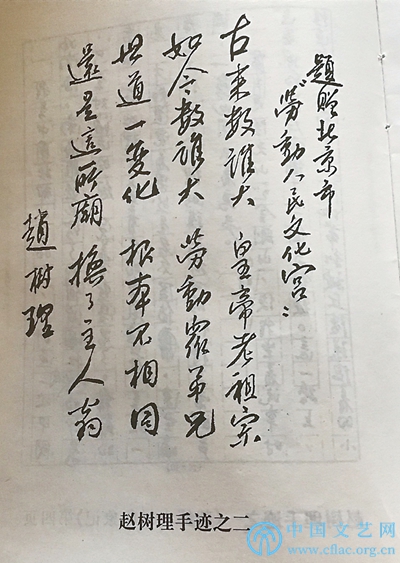 題贈北京市
勞動人民文化宮：
古来数誰大 皇帝老祖宗
如今数誰大 勞動眾弟兄
世道一变化 根本不相同
還是這所廟 換了主人翁
趙樹理
赵树理手迹之二
中国文艺网
www.cflac.org.cn